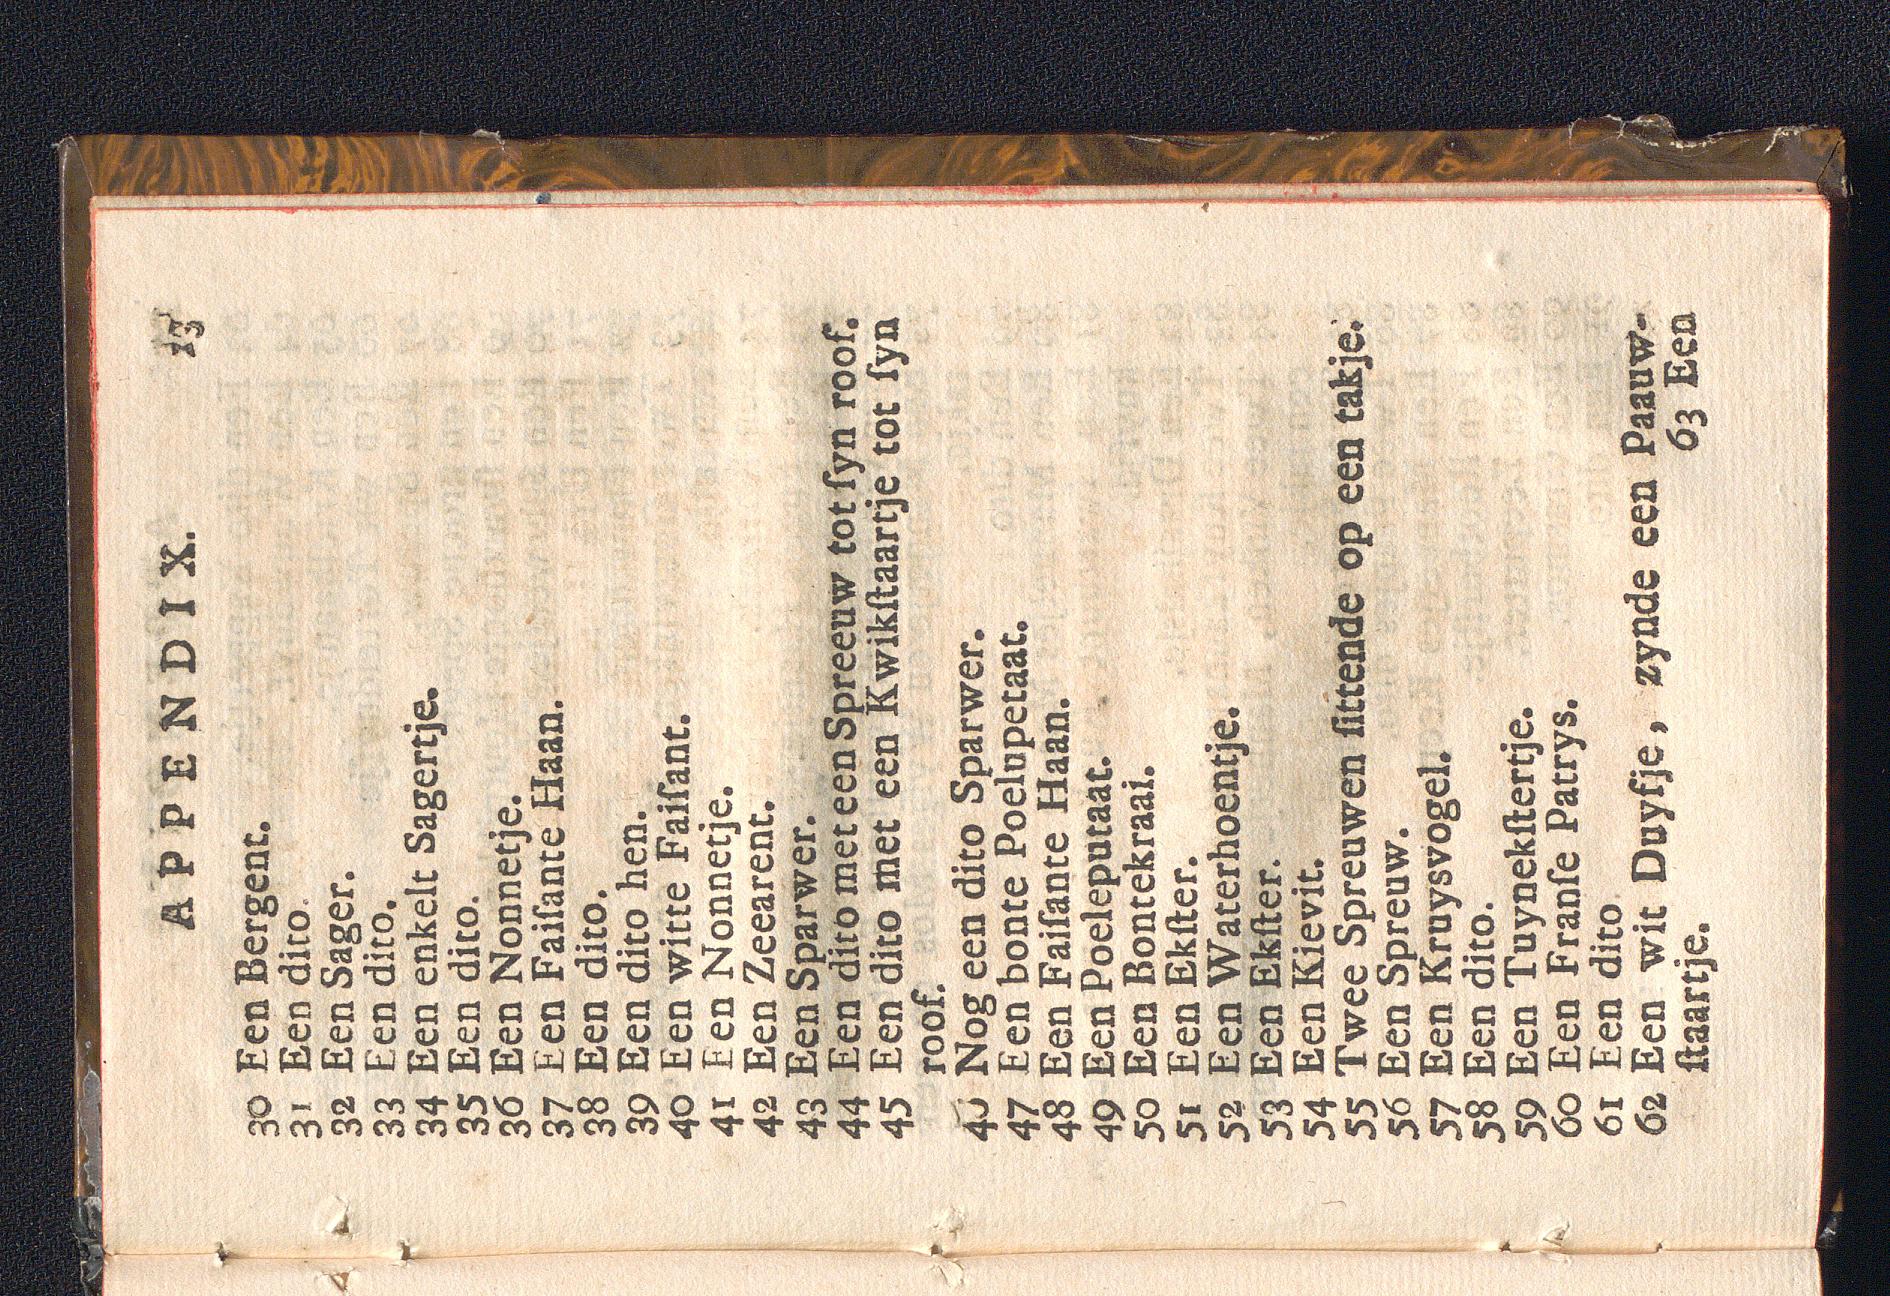 APPENDIX. 13
30 Een Bergent.
31 Een dito.
32 Een Sager.
33 Een dito.
34 Een enkelt Sagertje.
35 Een dito.
36 Een Nonnetje.
37 Een Faiſante Haan.
38 Een dito.
39 Een dito hen.
40 Een witte Faiſant.
41 Een Nonnetje.
42 Een Zeearent.
43 Een Sparwer.
44 Een dito met een Spreeuw tot ſyn roof.
45 Een dito met een Kwikſtaartje tot ſyn
roof.
46 Nog een dito Sparwer.
47 Een bonte Poelupetaat.
48 Een Faiſante Haan.
49 Een Poeleputaat.
50 Een Bontekraai.
51 Een Ekſter.
52 Een Waterhoentje.
53 Een Ekſter.
54 Een Kievit.
55 Twee Spreuwen ſittende op een takje.
56 Een Spreuw.
57 Een Kruysvogel.
58 Een dito.
59 Een Tuynekſtertje.
60 Een Franſe Patrys.
61 Een dito
62 Een wit Duyfje, zynde een Paauw-
ſtaartje. 63 Een